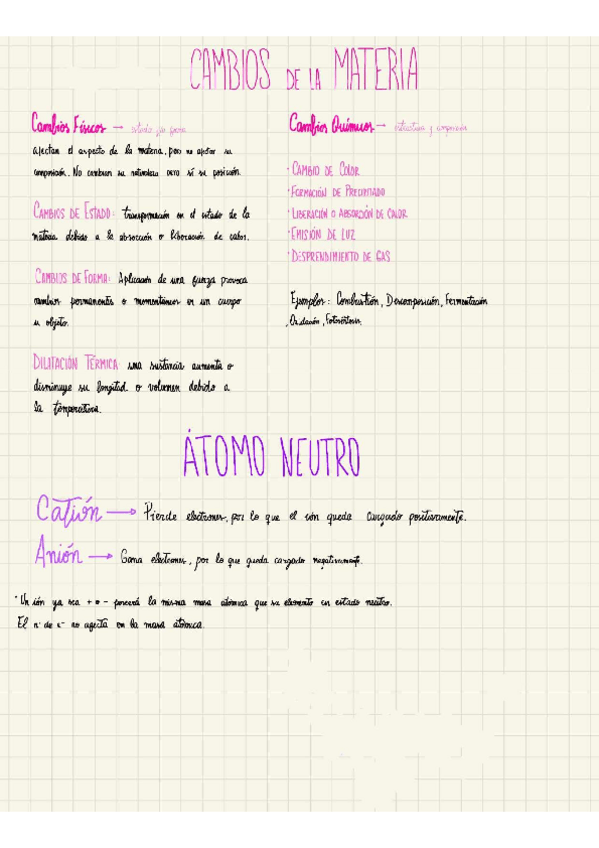 CAMBIOS DE LA MATERIA
Cambios Físicos →
afectan el aspecto de la materia, pero no afectan su
composición. No cambian su naturaleza pero sí su posición.
CAMBIOS DE ESTADO: transformación en el estado de la
materia debido a la absorción o liberación de calor.
CAMBIOS DE FORMA: Aplicación de una fuerza provoca
cambios permanentes o momentáneos en un cuerpo
u objeto.
DILATACIÓN TÉRMICA una sustancia aumenta o
disminuye su longitud o volumen debido a
la temperatura
Cambios Químicos → estructura y composición
· CAMBIO DE COLOR
· FORMACIÓN DE PRECIPITADO
· LIBERACIÓN O ABSORCIÓN DE CALOR
· EMISIÓN DE LUZ
· DESPRENDIMIENTO DE GAS
Ejemplos: Combustión, Descomposición, Fermentación
, Oxidación, Fotosíntesis.
ÁTOMO NEUTRO
Catión → Pierde electrones, por lo que el ión queda cargado positivamente.
Anión → Gana electrones, por lo que queda cargado negativamente.
· Un ión ya sea + o - poseerá la misma masa atómica que su elemento en estado neutro.
El nº de e- no afecta en la masa atómica.